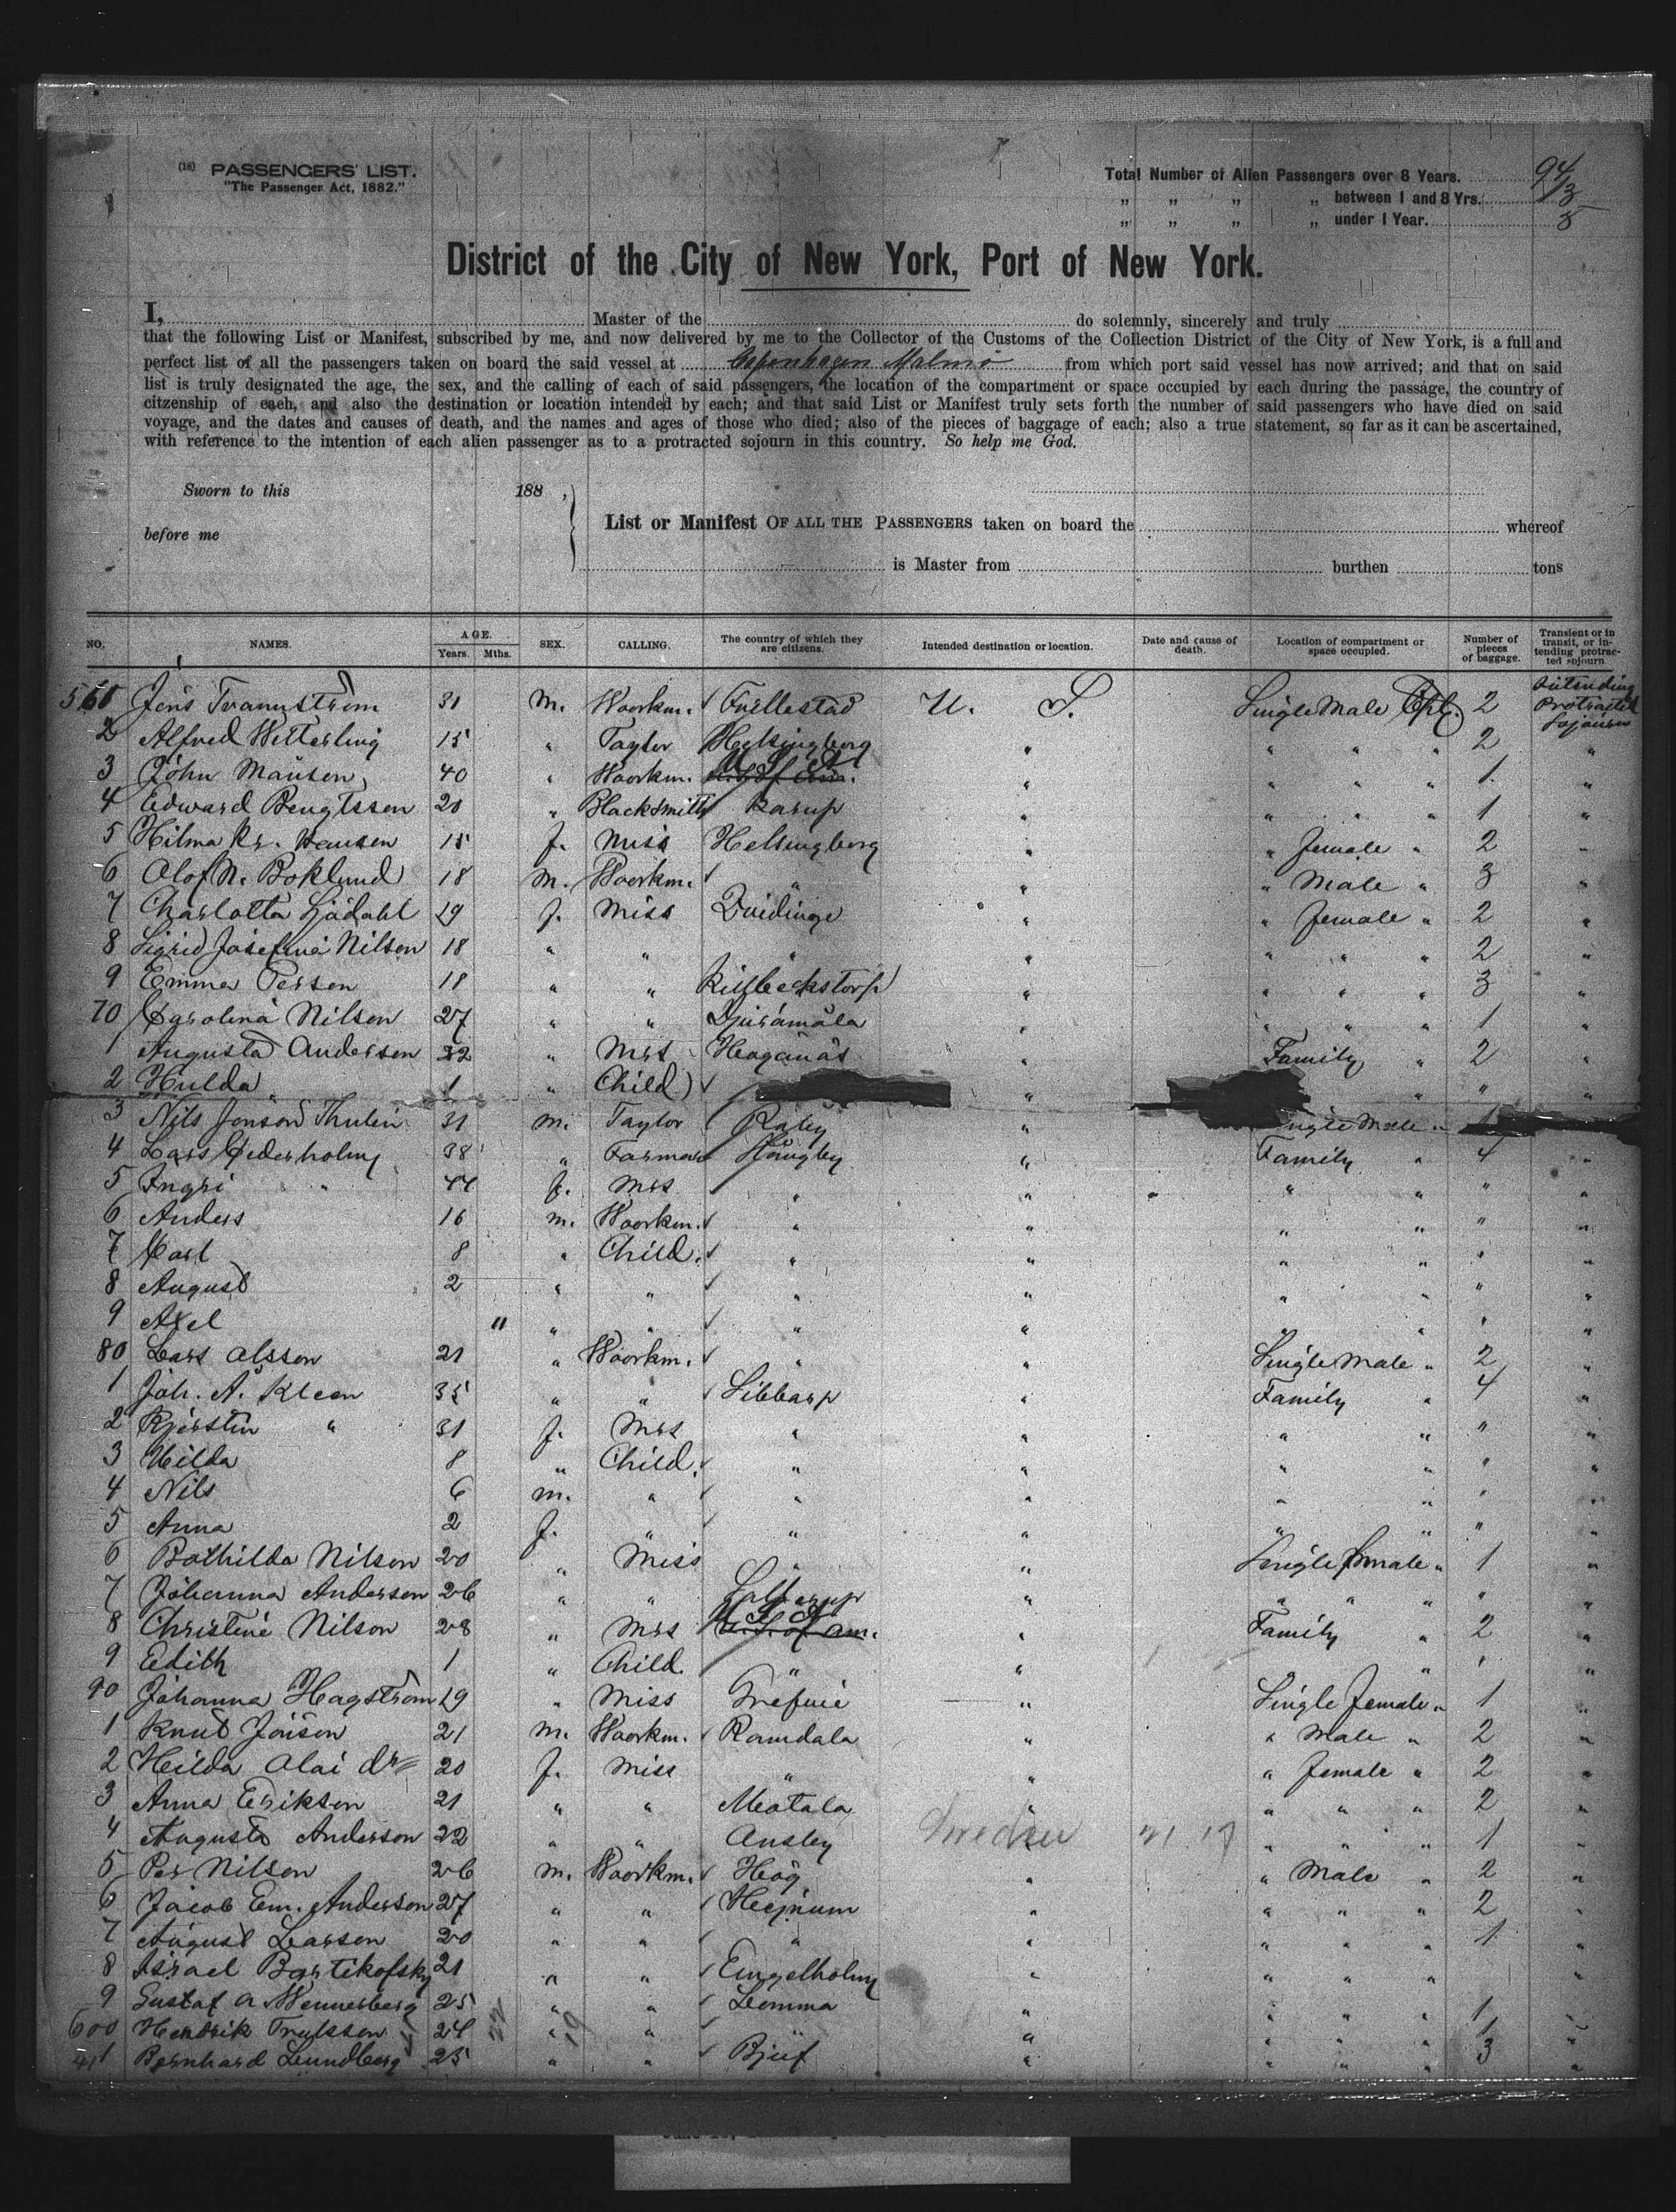 (16) PASSENGERS' LIST.
"The Passenger Act, 1882."
Total Number of Alien Passengers over 8 Years. 94
„ „ „ „ between 1 and 8 Yrs. 13
„ „ „ „ under 1 Year. 8
District of the City of New York, Port of New York.
I, Master of the do solemnly, sincerely and truly
that the following List or Manifest, subscribed by me, and now delivered by me to the Collector of the Customs of the Collection District of the City of New York, is a full and
perfect list of all the passengers taken on board the said vessel at Copenhagen Malmö from which port said vessel has now arrived; and that on said
list is truly designated the age, the sex, and the calling of each of said passengers, the location of the compartment or space occupied by each during the passage, the country of
citzenship of each, and also the destination or location intended by each; and that said List or Manifest truly sets forth the number of said passengers who have died on said
voyage, and the dates and causes of death, and the names and ages of those who died; also of the pieces of baggage of each; also a true statement, so far as it can be ascertained,
with reference to the intention of each alien passenger as to a protracted sojourn in this country. So help me God.
Sworn to this 188 ,
before me
List or Manifest OF ALL THE PASSENGERS taken on board the whereof
is Master from burthen tons
NO. NAMES. AGE. Years. Mths. SEX. CALLING. The country of which they are citizens. Intended destination or location. Date and cause of death. Location of compartment or space occupied. Number of pieces of baggage. Transient or in transit, or intending protracted sojourn
561 Jöns Trannström 31 m. Woorkm. Fjellestad U. S. Single Male Cpt. 2 Intending Protracted Sojourn
2 Alfred Wetterling 15 " Taylor Helsingborg " " " " 2 "
3 John Mansen 40 " Woorkm. U.S.A. " " " " 1 "
4 Edward Bengtsson 20 " Blacksmith Karup " " " " 1 "
5 Hilma Kr. Hansen 15 f. Miss Helsingborg " " female " 2 "
6 Olof N. Boklund 18 m. Woorkm. " " " Male " 3 "
7 Charlotta Sjödahl 19 f. Miss Quidinge " " female " 2 "
8 Sigrid Josefina Nilson 18 " " " " " " " 2 "
9 Emma Persson 18 " " " " " " 3 "
70 Carolina Nilson 27 " " Djuramåla " " " " 1 "
1 Augusta Anderson 32 " Mrs Höganäs " Family " 2 "
2 Hulda 1 " Child " " " "
3 Nils Jönson Thulin 31 m. Taylor Råby " Single Male " 1
4 Lars Cederholm 38 " Farmer Hångby " Family " 4 "
5 Ingri " 44 f. Mrs " " " " " "
6 Anders 16 m. Woorkm. " " " " " "
7 Carl 8 " Child. " " " " " "
8 August 2 " " " " " " " "
9 Axel 11 " " " " " " " "
80 Lars Olsson 21 " Woorkm. " " Single Male " 2 "
1 Joh. A. Kleen 35 " " Sibbarp " Family " 4 "
2 Kjerstin " 31 f. Mrs " " " " " "
3 Hilda 8 " Child. " " " " " "
4 Nils 6 m. " " " " " " "
5 Anna 2 f. " " " " " " "
6 Bothilda Nilson 20 " Miss " " Single female " 1 "
7 Johanna Anderson 26 " " " " " " " "
8 Christine Nilson 28 " Mrs U.S.A. " Family " 2 "
9 Edith 1 " Child. " " " " "
90 Johanna Hagström 19 " Miss " Single female " 1 "
1 Knut Jönson 21 m. Woorkm. Ramdala " " Male " 2 "
2 Hilda Olai dr 20 f. Miss " " " female " 2 "
3 Anna Erikson 21 " " Motala " " " " 2 "
4 Augusta Anderson 22 " " Ansby Sweden " " " 1 "
5 Per Nilson 26 m. Woorkm. Hög " " Male " 2 "
6 Jacob Em. Anderson 27 " " Hejnum " " " " 2 "
7 August Larson 20 " " " " " " " 1 "
8 Israel Bartikofsky 21 " " Engelholm " " " " "
9 Gustaf A Wennerberg 25 " " Lomma " " " " 1 "
600 Hendrik Trulsson 24 " " " " " " 1 "
1 Bernhard Lundberg 25 " " Bjuf " " " " 3 "